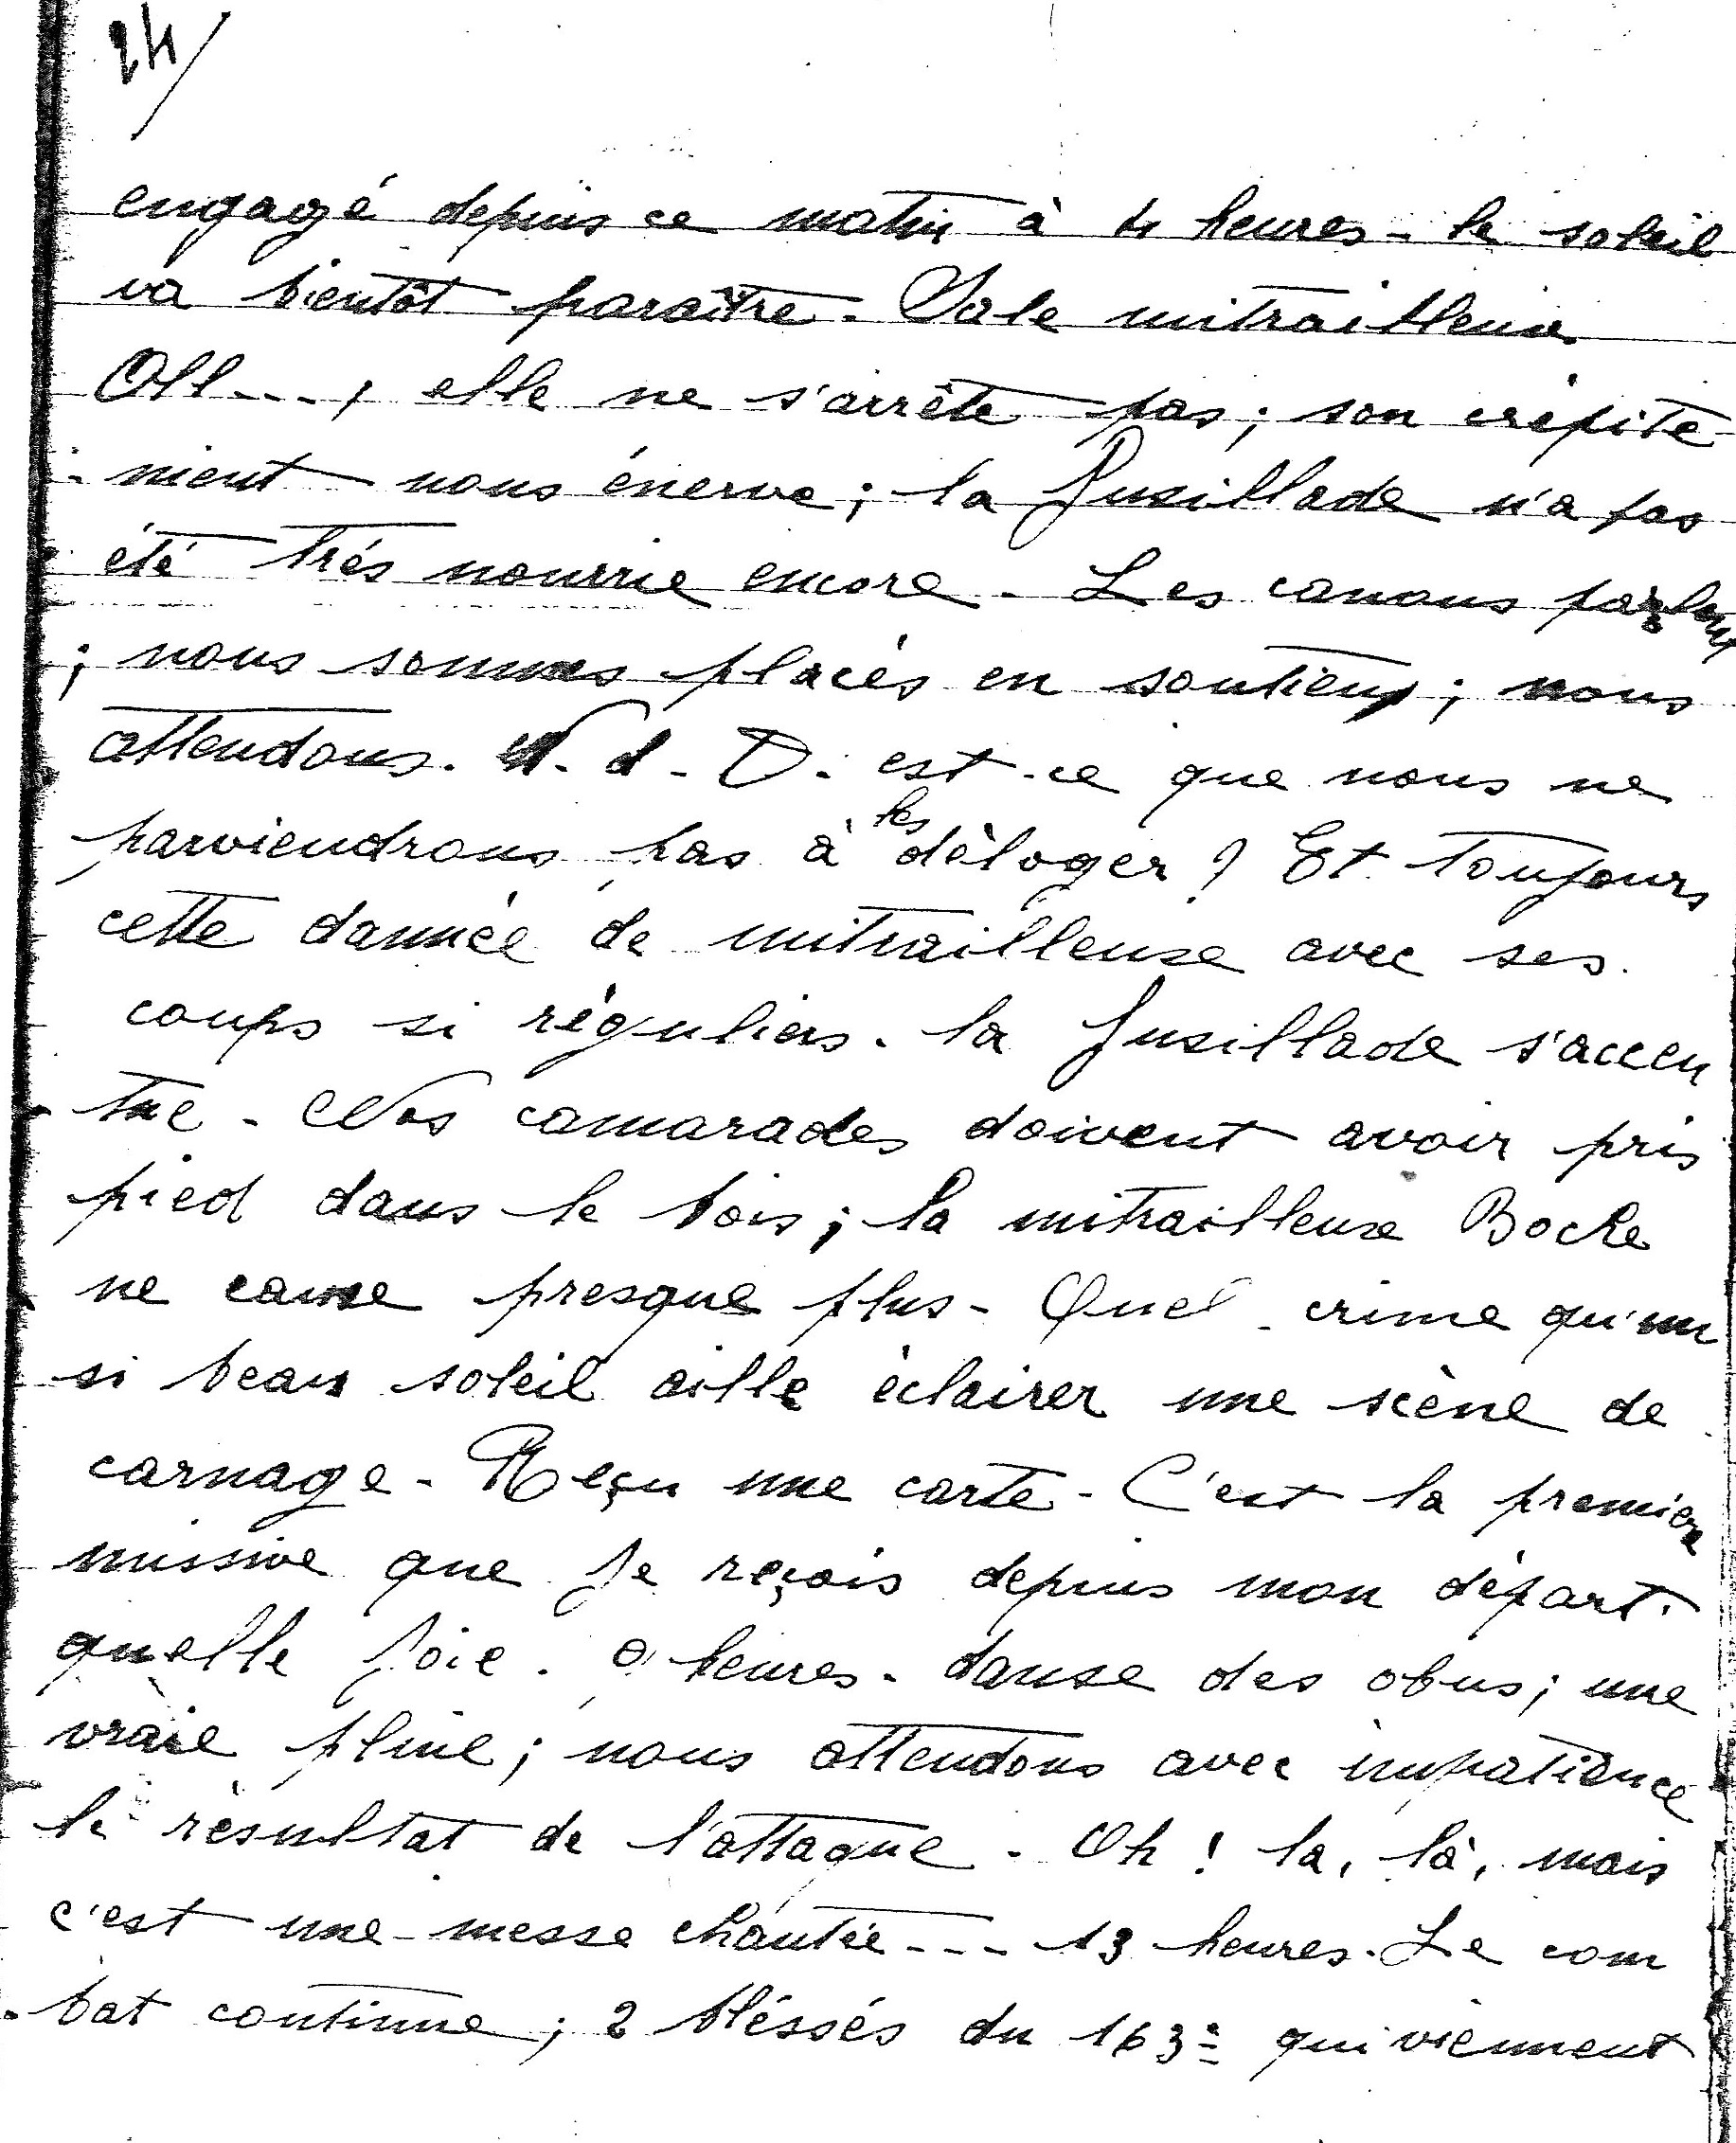 24/
engagé depuis ce matin à 4 heures - le soleil
va bientôt paraître. Sale mitrailleuse
All---, elle ne s'arrête pas; son crépite-
- ment nous énerve; la fusillade n'a pas
été très nourrie encore. Les canons parlent
; nous sommes placés en soutien; nous
attendons. N. d. D. est-ce que nous ne
parviendrons pas à les déloger? Et toujours
cette damnée de mitrailleuse avec ses
coups si réguliers. la fusillade s'accen
tue - Nos camarades doivent avoir pris
pied dans le bois; la mitrailleuse Boche
ne cause presque plus - Quel crime qu'un
si beau soleil aille éclairer une scène de
carnage - Reçu une carte - C'est la première
missive que je reçois depuis mon départ.
quelle joie. 9 heures - danse des obus; une
vraie pluie; nous attendons avec impatience
le résultat de l'attaque. Oh! la, là, mais
c'est une messe chantée--- 13 heures. Le com
- bat continue; 2 bléssés du 163e qui viennent